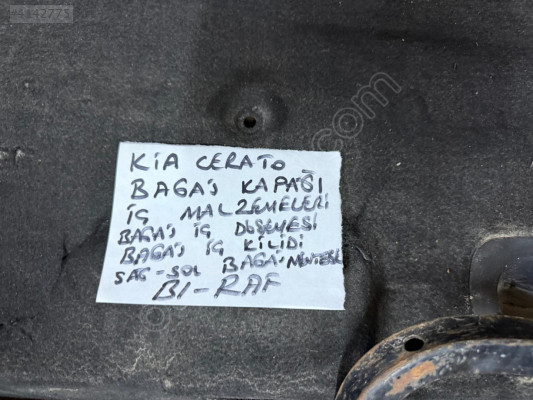 KIA CERATO
BAGAJ KAPAĞI
İÇ MALZEMELERİ
BAGAJ İÇ DÖŞEMESİ
BAGAJ İÇ KİLİDİ
SAĞ-SOL BAGAJ MENTEŞE
B1-RAF